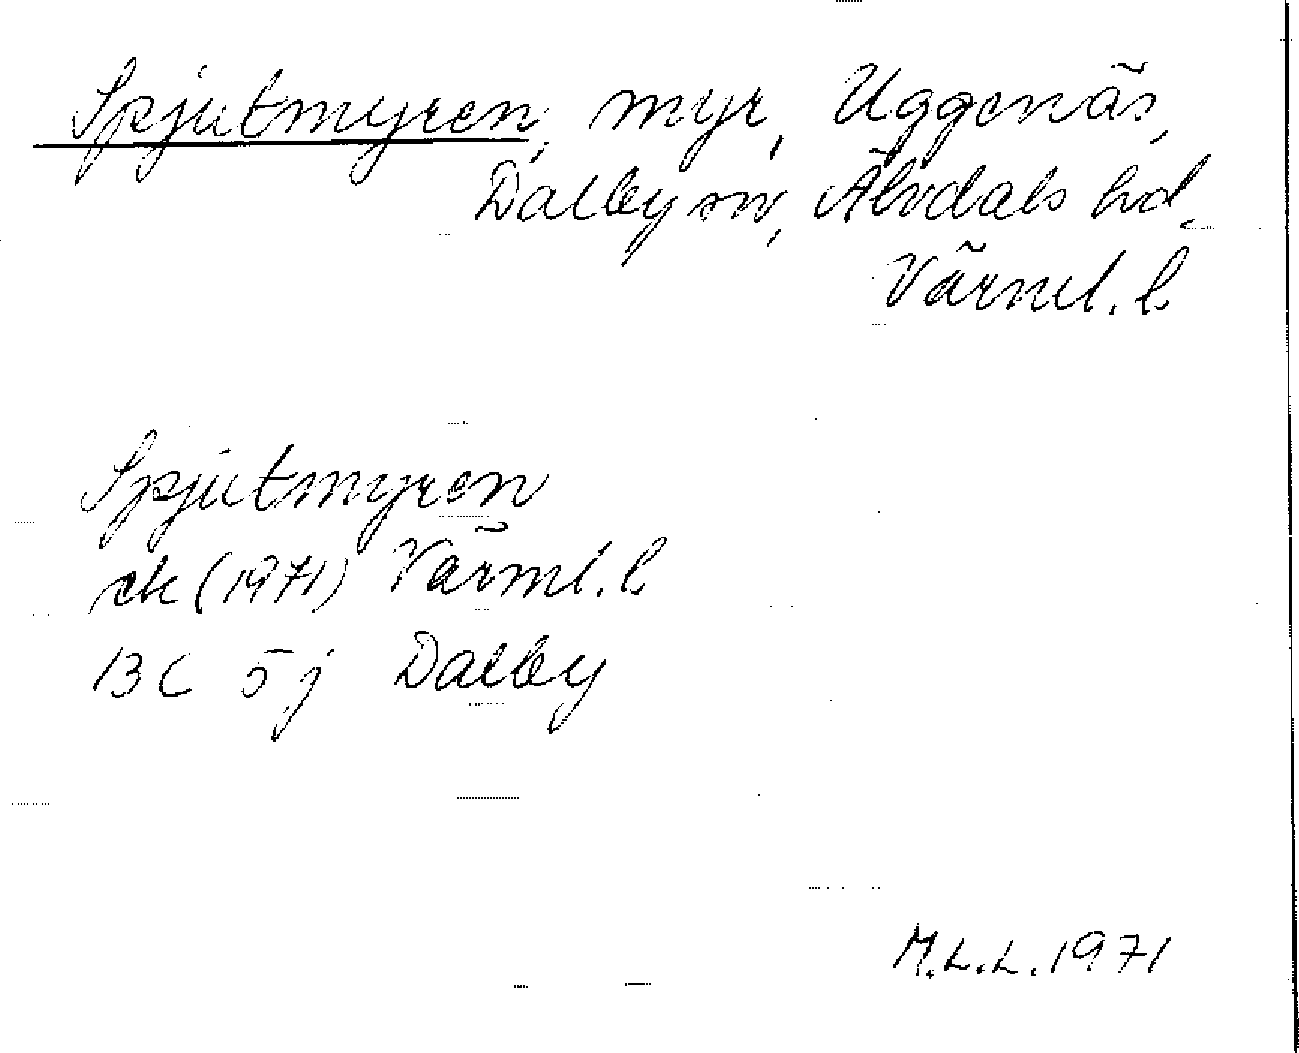 Spjutmyren, myr, Uggenäs,
Dalby sn, Älvdals hd,
Värml. l.
Spjutmyren
ek (1971) Värml. l.
13 C 5 j Dalby
M.L.L. 1971